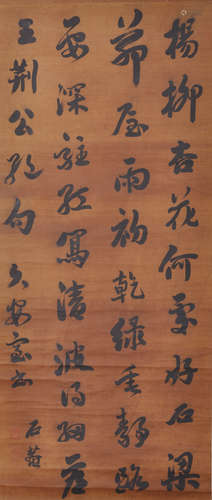 楊柳杏花何處好石梁
茅屋雨初乾綠垂靜路
要深駐紅寫清波得細看
王荊公絕句 久安室書 石菴